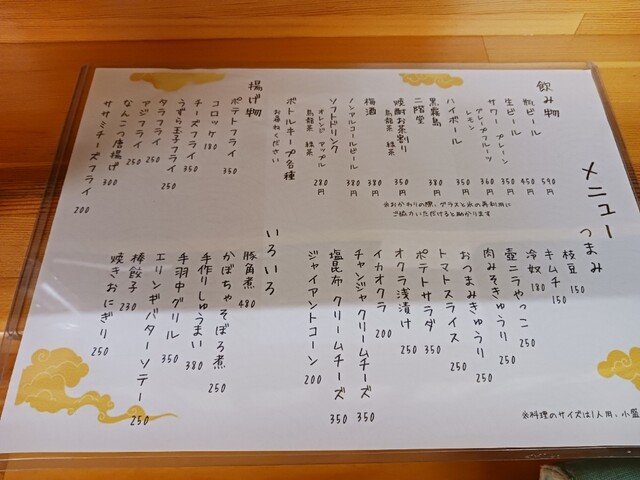 メニュー
飲み物
瓶ビール 590
生ビール 450
サワー プレーン 350
グレープフルーツ 360
レモン
ハイボール 350
黒霧島 380
二階堂
焼酎お茶割り 350円
烏龍茶 緑茶
梅酒 380
ノンアルコールビール 380円
ソフトドリンク 280円
オレンジ アップル
烏龍茶 緑茶
ボトルキープ各種
お尋ねください
※おかわりの際、グラスと氷の再利用に
ご協力いただけると助かります
揚げ物
ポテトフライ 350
コロッケ 180
チーズフライ 350
うずら玉子フライ 250
タラフライ 250
アジフライ 250
なんこつ唐揚げ 300
ササミチーズフライ 200
つまみ
枝豆 150
キムチ 150
冷奴 180
壺ニラやっこ 250
肉みそきゅうり 250
おつまみきゅうり 250
トマトスライス 250
ポテトサラダ 350
オクラ浅漬け 250
イカオクラ 200
チャンジャクリームチーズ 350
塩昆布クリームチーズ 350
ジャイアントコーン 200
いろいろ
豚角煮 480
かぼちゃそぼろ煮 250
手作りしゅうまい 380
手羽中グリル 350
エリンギバターソテー 250
棒餃子 230
焼きおにぎり 250
※料理のサイズは1人用、小盛